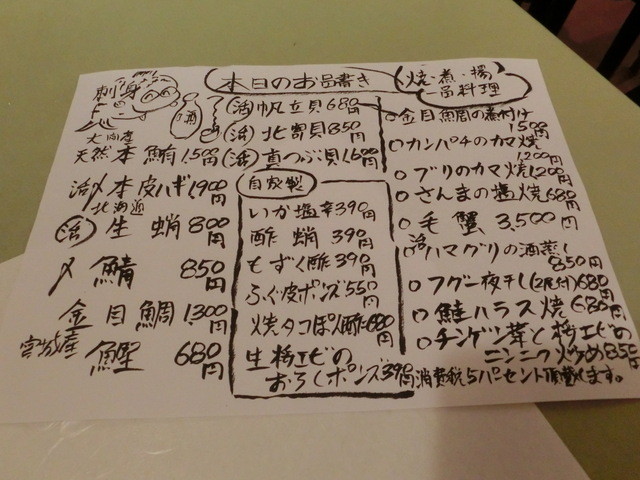 本日のお品書き
刺身
酒
大間産
天然本鮪1,500円
活〆本皮ハギ1,900円
北海道
活 生蛸800円
〆鯖850円
金目鯛1,300円
宮城産
鰹680円
活 帆立貝680円
活 北寄貝850円
活 真つぶ貝1,600円
自家製
いか塩辛390円
酢蛸390円
もずく酢390円
ふぐ皮ポンズ550円
焼タコぽん酢680円
生桜エビの
おろしポンズ390円
焼・煮・揚
一品料理
○金目鯛の煮付け
1500円
○カンパチのカマ焼
1,200円
○ブリのカマ焼1,200円
○さんまの塩焼680円
○毛蟹3,500円
○活ハマグリの酒蒸し
850円
○フグ一夜干し(2尾付)680円
○鮭ハラス焼680円
○チンゲン菜と桜エビの
ニンニク炒め850円
消費税5パーセント頂戴します。